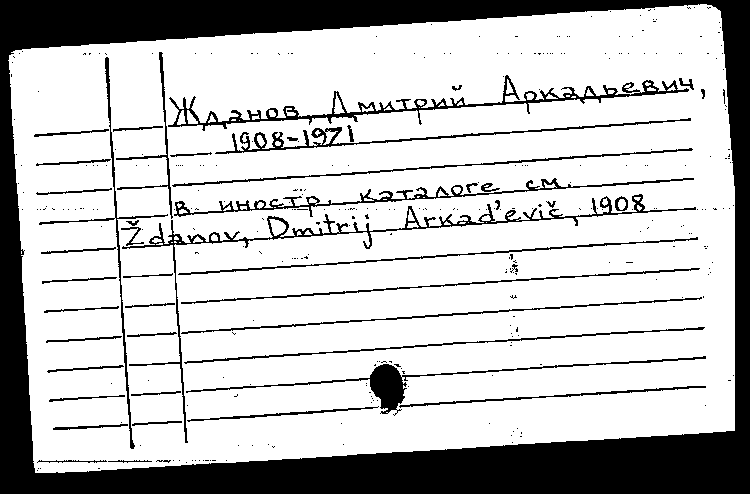 Жданов, Дмитрий Аркадьевич,
1908-1971
в иностр. каталоге см.
Ždanov, Dmitrij Arkad'evič, 1908